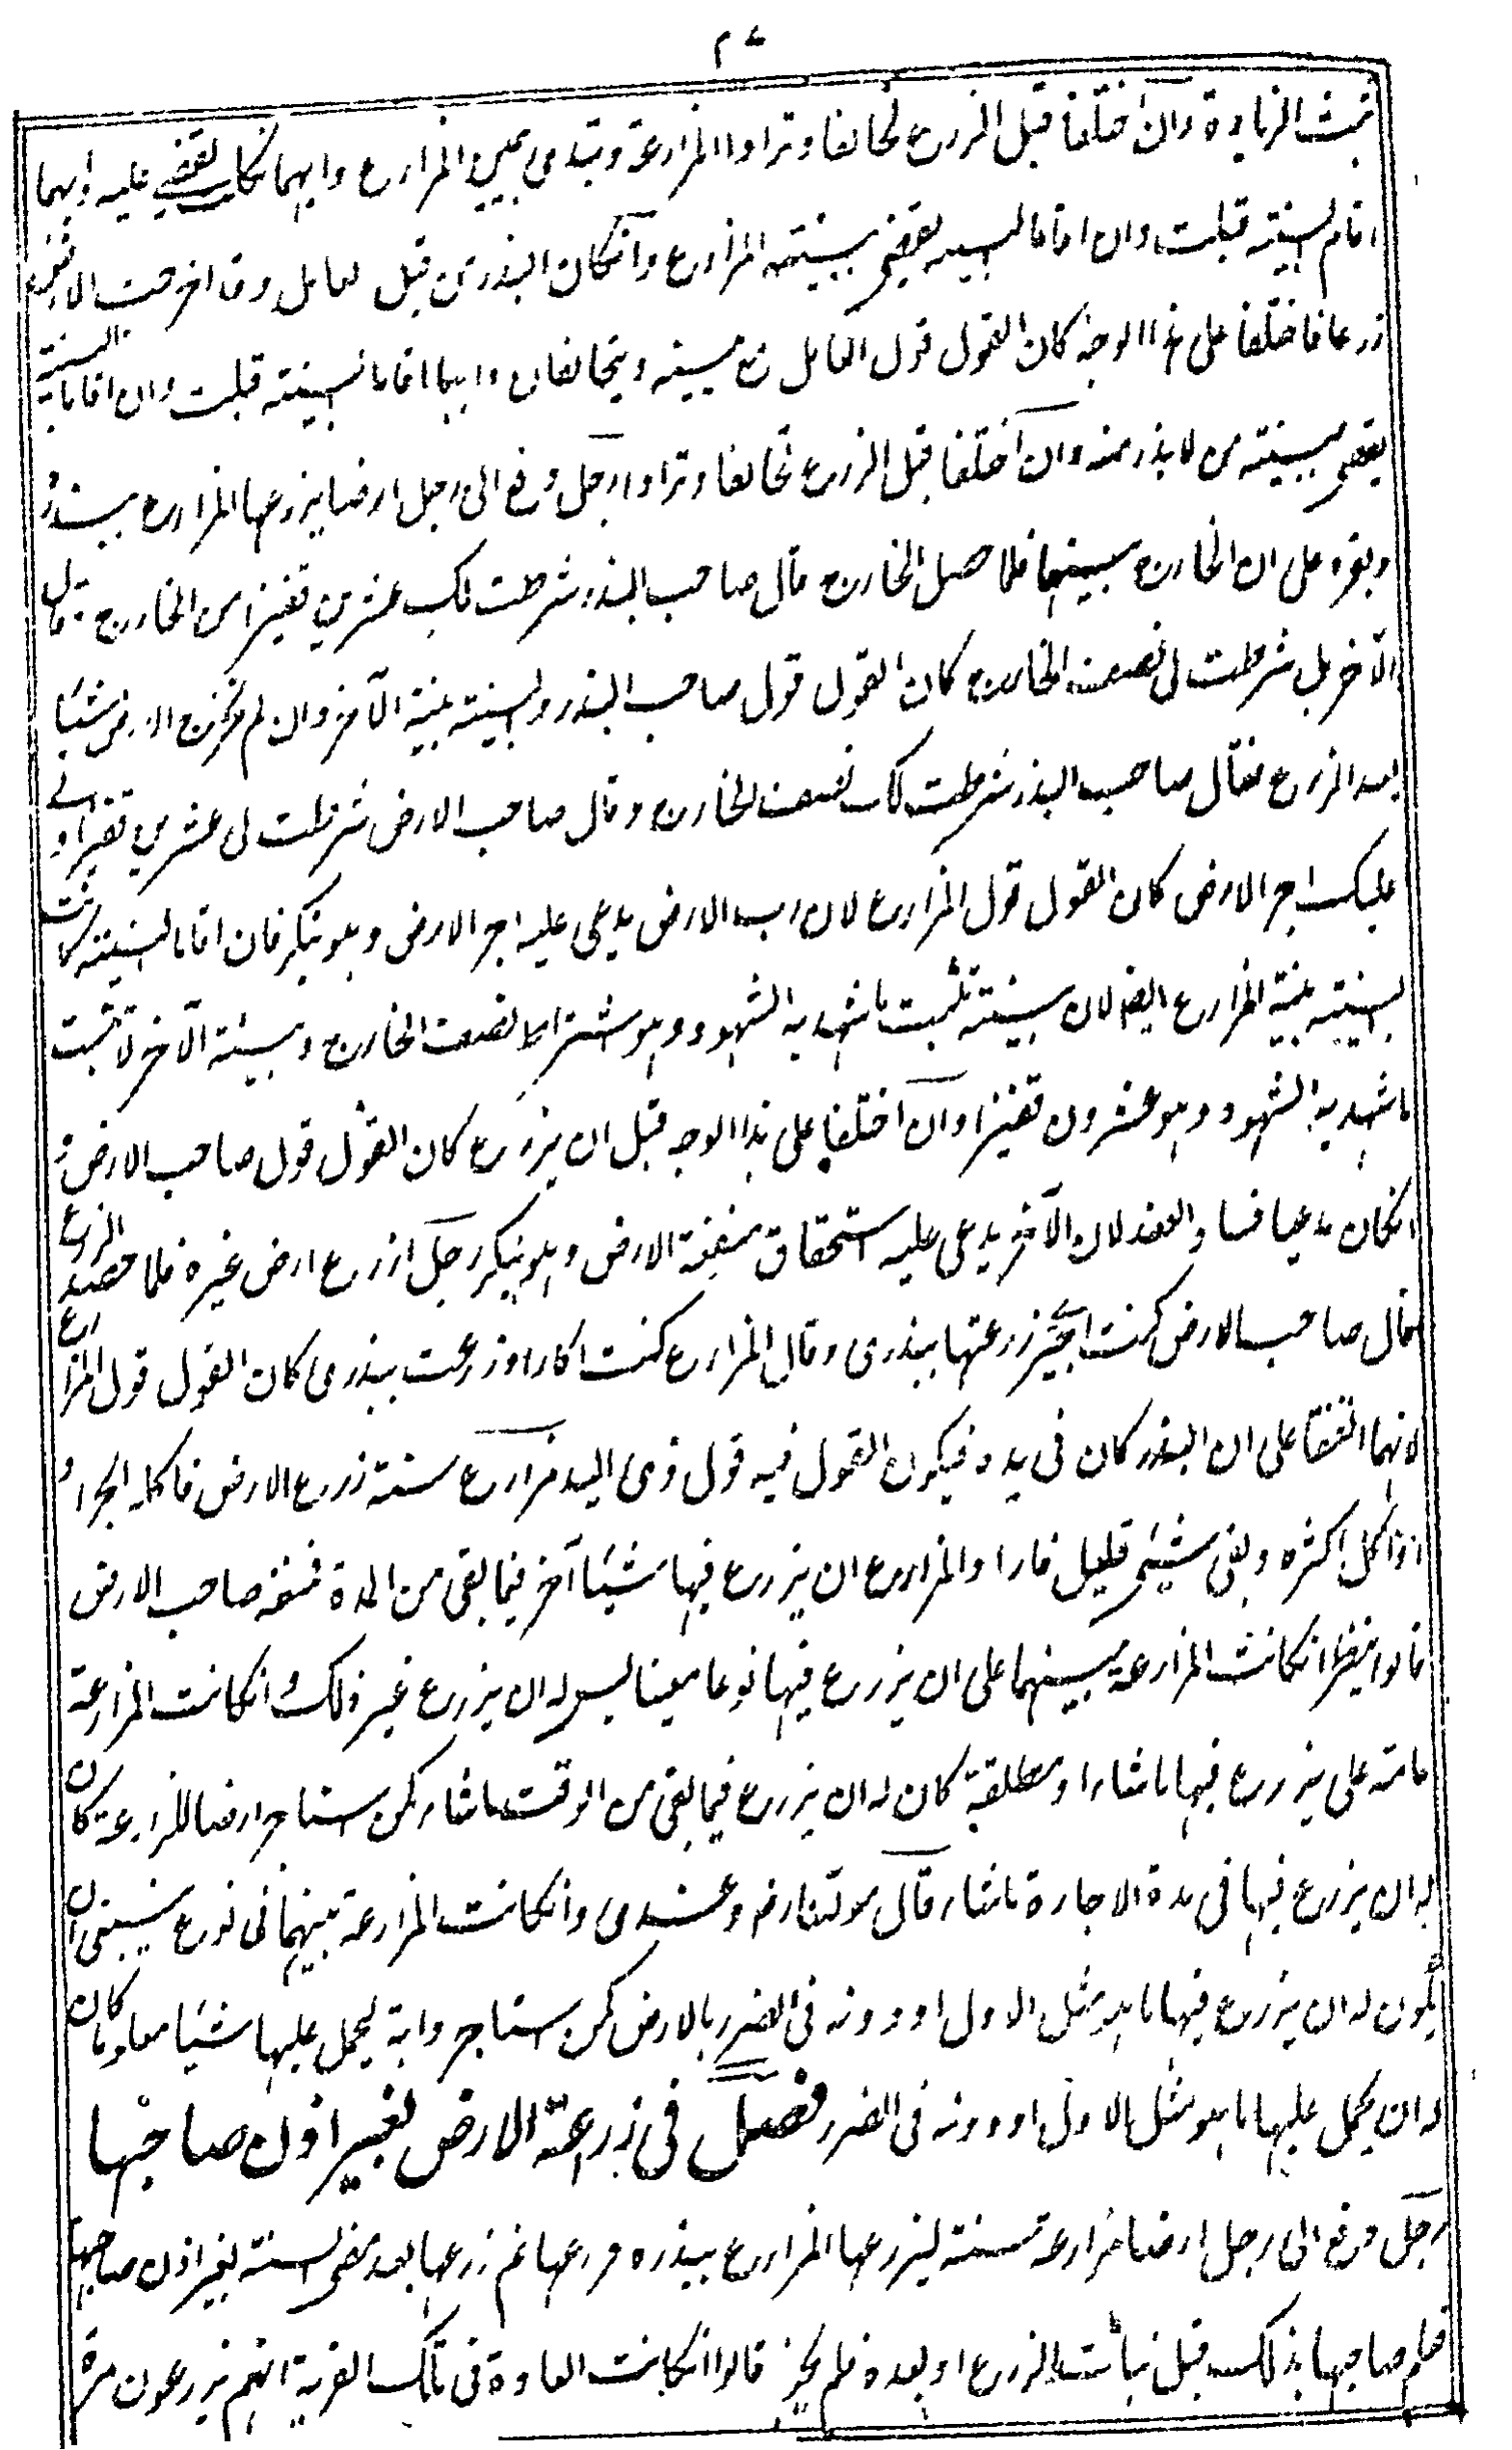 ٢٧
تثبت الزيادة وان اختلفا قبل الزرع تحالفا وترادا المزارعة ويبتدئ بيمين المزارع وايهما نكل يقضي عليه وايهما
اقام البينة قبلت وان اقاما البينة يقضى ببينة المزارع وانكان البذر من قبل العامل وقد اخرجت الارض
زرعا فاختلفا على هذا الوجه كان القول قول العامل مع يمينه ويتحالفان وايهما اقاما البينة قبلت وان اقاما البينة
يقضى ببينة من لا بذر منه وان اختلفا قبل الزرع تحالفا وترادا رجل دفع الى رجل ارضا يزرعها المزارع ببذره
وبقره على ان الخارج بينهما فلما حصل الخارج قال صاحب البذر شرطت لك عشرين قفيزا من الخارج وقال
الآخر بل شرطت لى نصف الخارج كان القول قول صاحب البذر والبينة بينة الآخر وان لم تخرج الارض شيئا
بعد الزرع فقال صاحب البذر شرطت لك نصف الخارج وقال صاحب الارض شرطت لى عشرين قفيزا ولى
عليك اجر الارض كان القول قول المزارع لان رب الارض يدعى عليه اجر الارض وهو ينكر فان اقاما البينة كانت
البينة بينة المزارع ايضا لان بينته تثبت ما شهد به الشهود وهو اشتراط نصف الخارج وبينة الآخر لا تثبت
ما شهد به الشهود وهو عشرون قفيزا وان اختلفا على هذا الوجه قبل ان يزرع كان القول قول صاحب الارض و
انكان مدعيا فساد العقد لان الآخر يدعى عليه استحقاق منفعة الارض وهو ينكر رجل زرع ارض غيره فلما حصد الزرع
قال صاحب الارض كنت اجيرى زرعتها ببذرى وقال المزارع كنت اكارا وزرعت ببذرى كان القول قول المزارع
لانهما اتفقا على ان البذر كان فى يده فيكون القول فيه قول ذى اليد مزارع سنة زرع الارض فاكله الجراد
او اكل اكثره وبقى شيئى قليل فاراد المزارع ان يزرع فيها شيئا آخر فيما بقى من المدة فمنعه صاحب الارض
قالوا ينظر انكانت المزارعة بينهما على ان يزرع فيها نوعا معينا ليس له ان يزرع غير ذلك وانكانت المزارعة
عامة على ان يزرع فيها ما شاء او مطلقة كان له ان يزرع فيما بقى من الوقت ما شاء كمن استاجر ارضا للزراعة كان
له ان يزرع فيها فى مدة الاجارة ما شاء قال مولانا رض وعندى وانكانت المزارعة بينهما فى نوع ينبغى ان
يكون له ان يزرع فيها ما هو مثل الاول او دونه فى الضرر بالارض كمن استاجر دابة ليحمل عليها شيئا معلوما كان
له ان يحمل عليها ما هو مثل الاول او دونه فى الضرر فصل فى زراعة الارض لغير اذن صاحبها
رجل دفع الى رجل ارضا مزارعة سنة ليزرعها المزارع ببذره فزرعها ثم زرعها بعد مضى السنة بغير اذن صاحبها
فعلم صاحبها بذلك قبل نبات الزرع او بعده فلم يجز قالوا انكانت العادة فى تلك القرية انهم يزرعون مرة